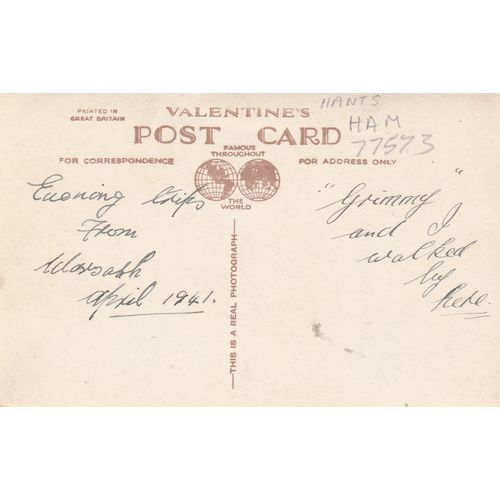 PRINTED IN
GREAT BRITAIN
VALENTINE'S
POST CARD
HANTS
HAM
77573
FOR CORRESPONDENCE
FAMOUS
THROUGHOUT
THE
WORLD
FOR ADDRESS ONLY
Evening trips
From
Warsash
April 1941.
THIS IS A REAL PHOTOGRAPH
"Grimmy"
and I
walked
by
here.